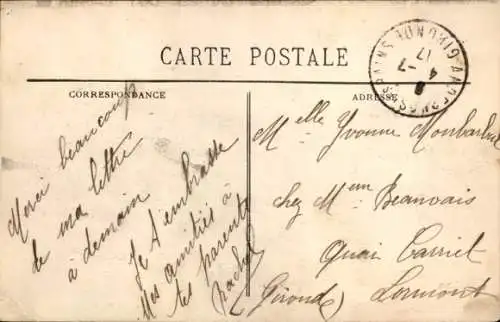 CARTE POSTALE
CORRESPONDANCE
Merci beaucoup
de ma lettre
à demain
Je t'embrasse
Mes amitiés à
tes parents
Rachel
ADRESSE
Melle Yvonne
chez Mme Beauvais
Quai Carriet
Lormont
(Gironde)
GIRONDE
4 -7
17